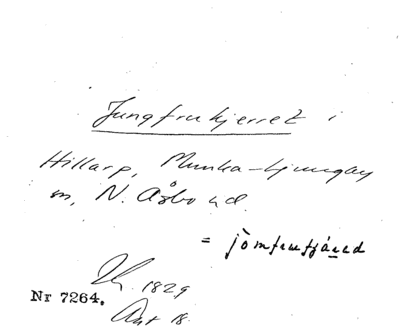 Jungfrukjerret i
Hillarp, Munka-Ljungby
m, N. Åsbo hd.
= jòmfrufjá
1829
Nr 7264.
Ant 18.